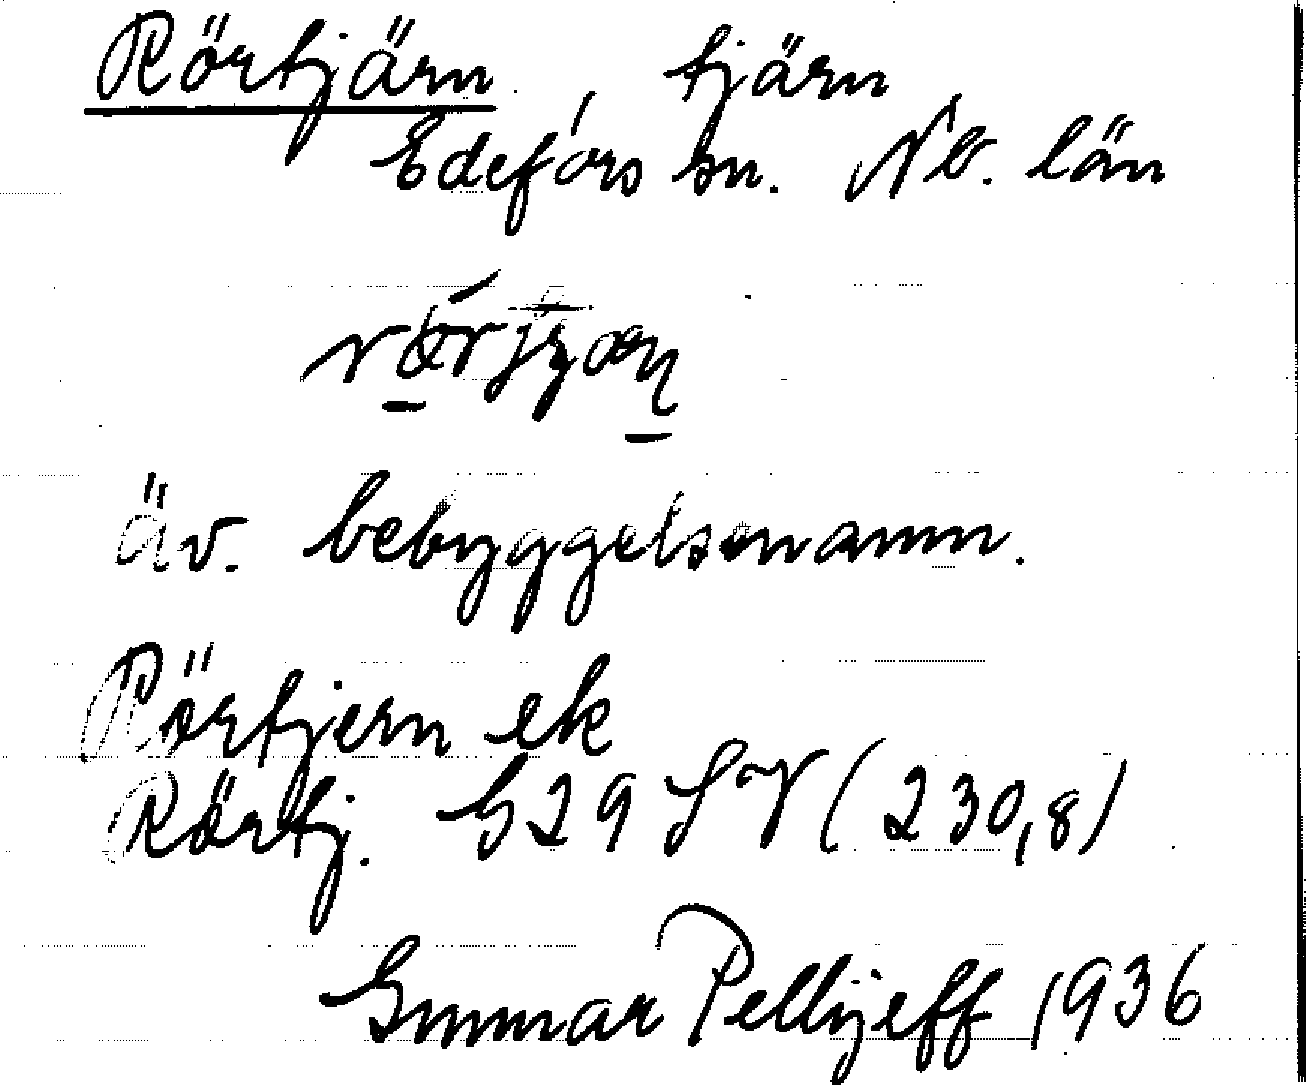 Rörtjärn, tjärn
Edefors sn. Nb. län
äv. bebyggelsenamn.
Rörtjern ek
Rörtj. G29 SV (230,8)
Gunnar Pellijeff 1936